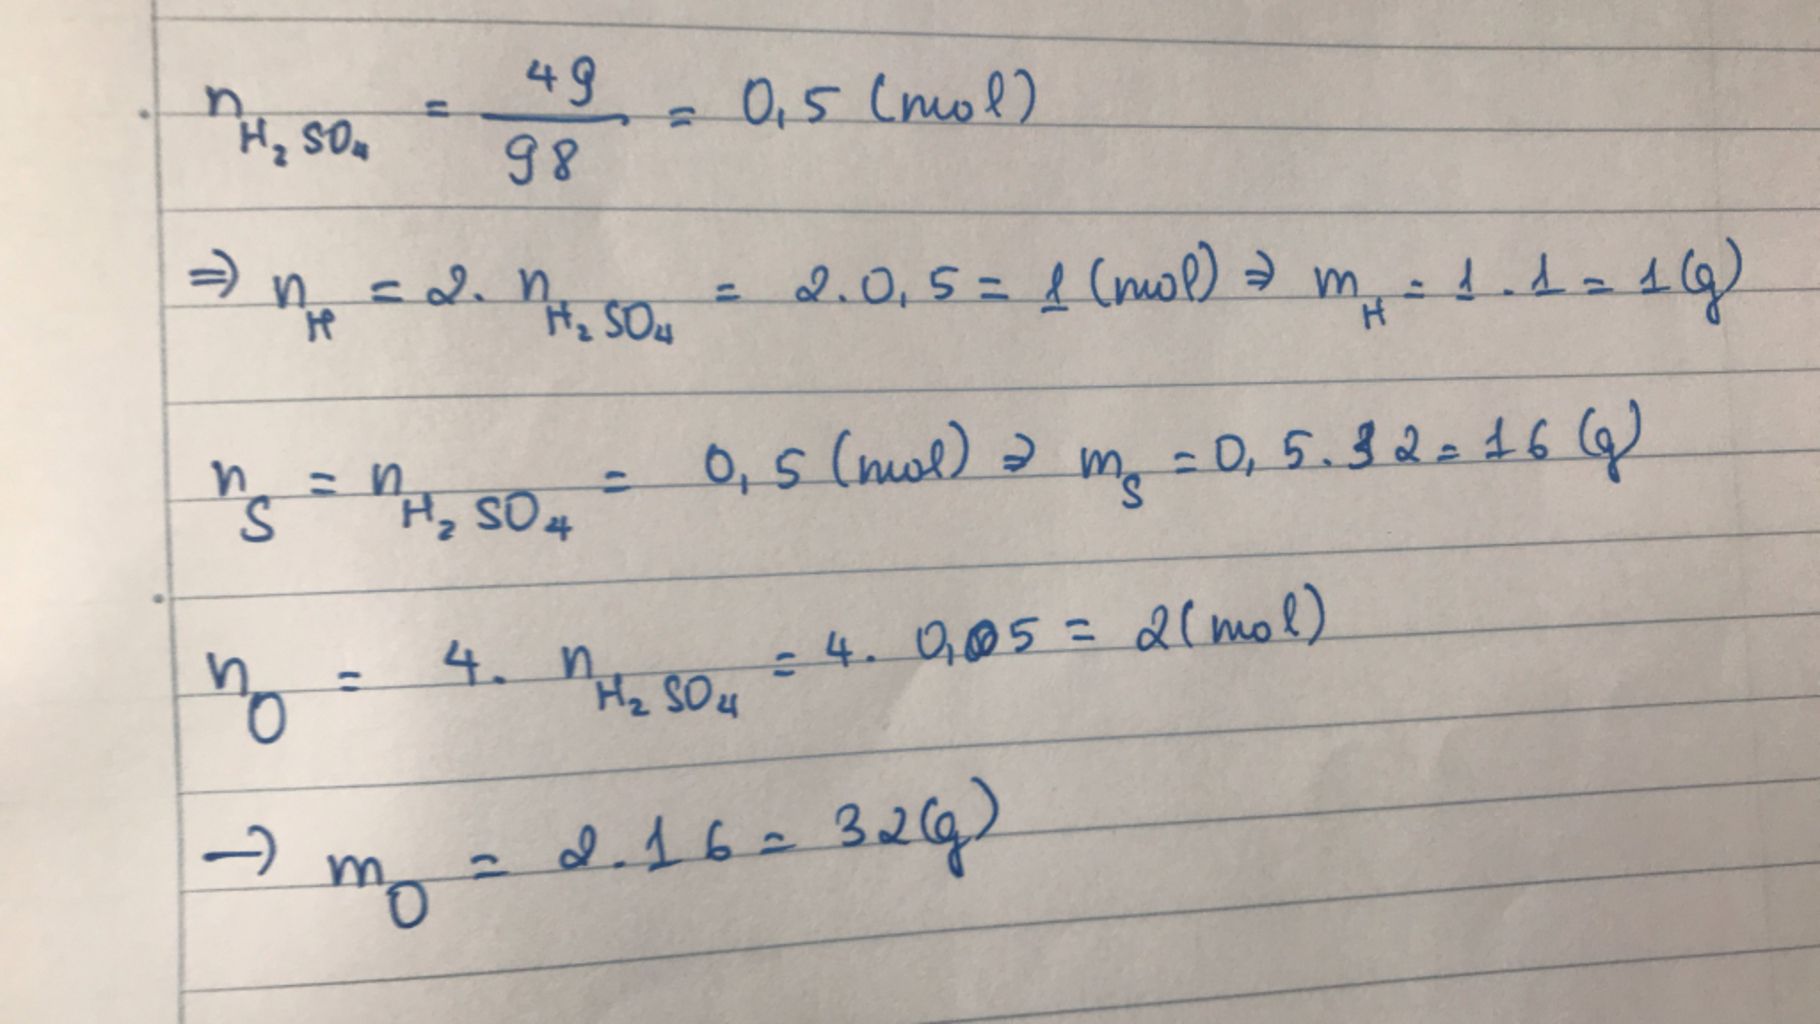 n_{H₂SO₄} = 49/98 = 0,5 (mol)
⇒ n_H = 2. n_{H₂SO₄} = 2.0,5 = 1 (mol) ⇒ m_H = 1.1 = 1 (g)
n_S = n_{H₂SO₄} = 0,5 (mol) ⇒ m_S = 0,5.32 = 16 (g)
n_O = 4. n_{H₂SO₄} = 4. 0,05 = 2 (mol)
→ m_O = 2.16 = 32 (g)